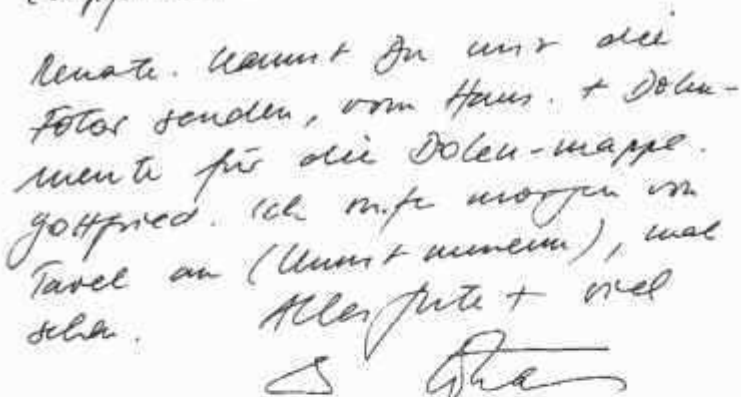 Renate. Kannst Du mir die
Fotos senden, vom Haus. + Doku-
mente für die Doku-mappe.
Gottfried. Ich rufe morgen von
Tavel an (Kunstmuseum), mal
sehen.  Alles gute + viel